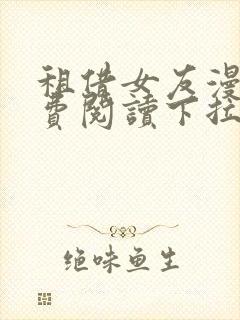 租借女友漫
费閱讀下拉
绝味鱼生